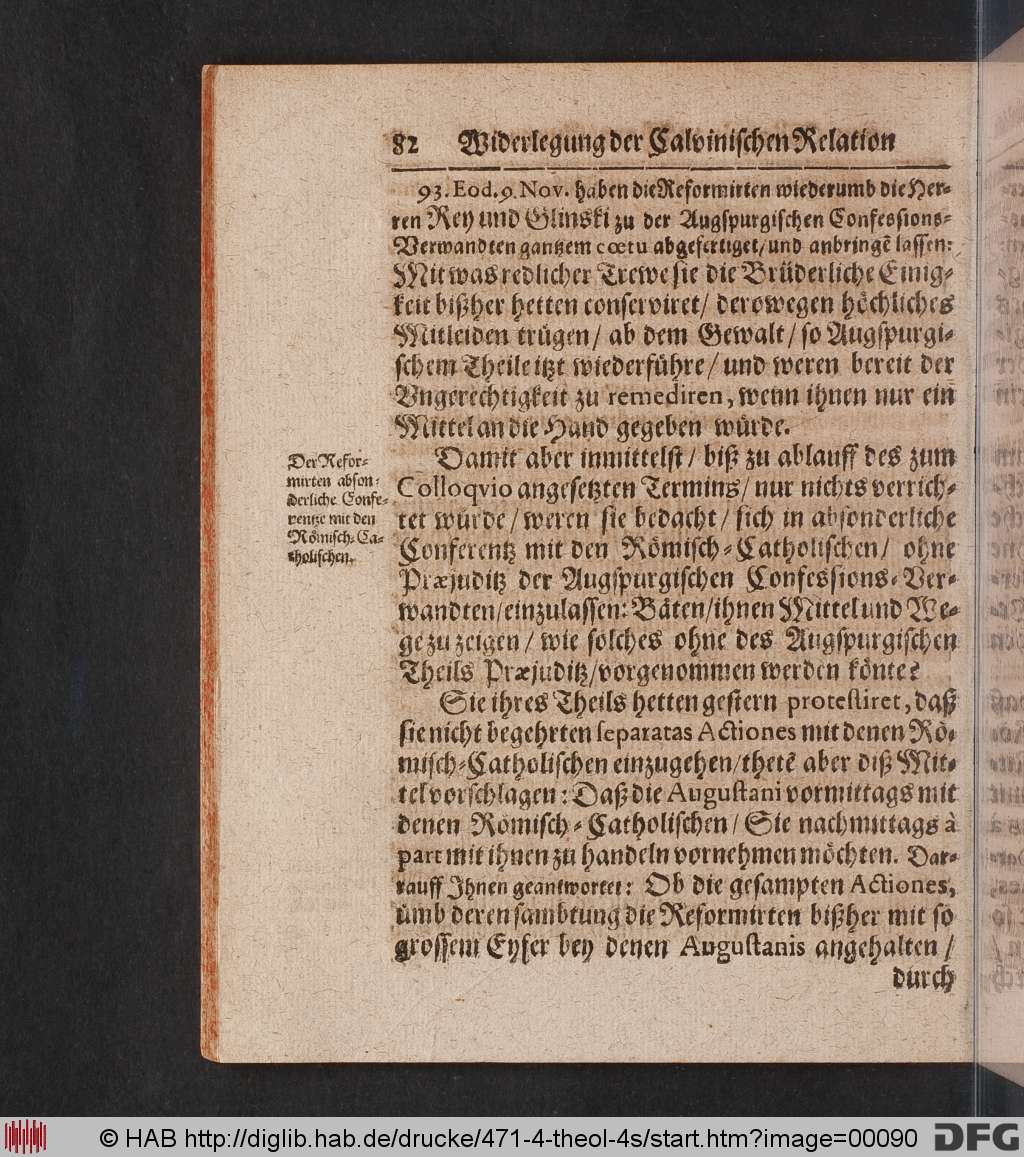 82 Widerlegung der Calvinischen Relation
93. Eod. 9. Nov. haben die Reformirten wiederumb die Her-
ren Rey und Glinski zu der Augspurgischen Confessions-
Verwandten gantzem cœtu abgefertiget/ und anbringē lassen:
Mit was redlicher Trewe sie die Brüderliche Einig-
keit bißher hetten conserviret/ derowegen höchliches
Mitleiden trügen/ ab dem Gewalt/ so Augspurgi-
schem Theile itzt wiederführe/ und weren bereit der
Vngerechtigkeit zu remediren, wenn ihnen nur ein
Mittel an die Hand gegeben würde.
Damit aber inmittelst/ biß zu ablauff des zum
Colloqvio angesetzten Termins/ nur nichts verrich-
tet würde/ weren sie bedacht/ sich in absonderliche
Conferentz mit den Römisch-Catholischen/ ohne
Præjuditz der Augspurgischen Confessions-Ver-
wandten/ einzulassen: Bäten/ ihnen Mittel und We-
ge zu zeigen/ wie solches ohne des Augspurgischen
Theils Præjuditz/ vorgenommen werden könte?
Der Refor-
mirten abson-
derliche Confe-
rentze mit den
Römisch-Ca-
tholischen.
Sie ihres Theils hetten gestern protestiret, daß
sie nicht begehrten separatas Actiones mit denen Rö-
misch-Catholischen einzugehen/ thetē aber diß Mit-
tel vorschlagen: Daß die Augustani vormittags mit
denen Römisch-Catholischen/ Sie nachmittags à
part mit ihnen zu handeln vornehmen möchten. Dar-
rauff Ihnen geantwortet: Ob die gesampten Actiones,
ümb deren sambtung die Reformirten bißher mit so
grossem Eyfer bey denen Augustanis angehalten/
durch
© HAB http://diglib.hab.de/drucke/471-4-theol-4s/start.htm?image=00090
DFG